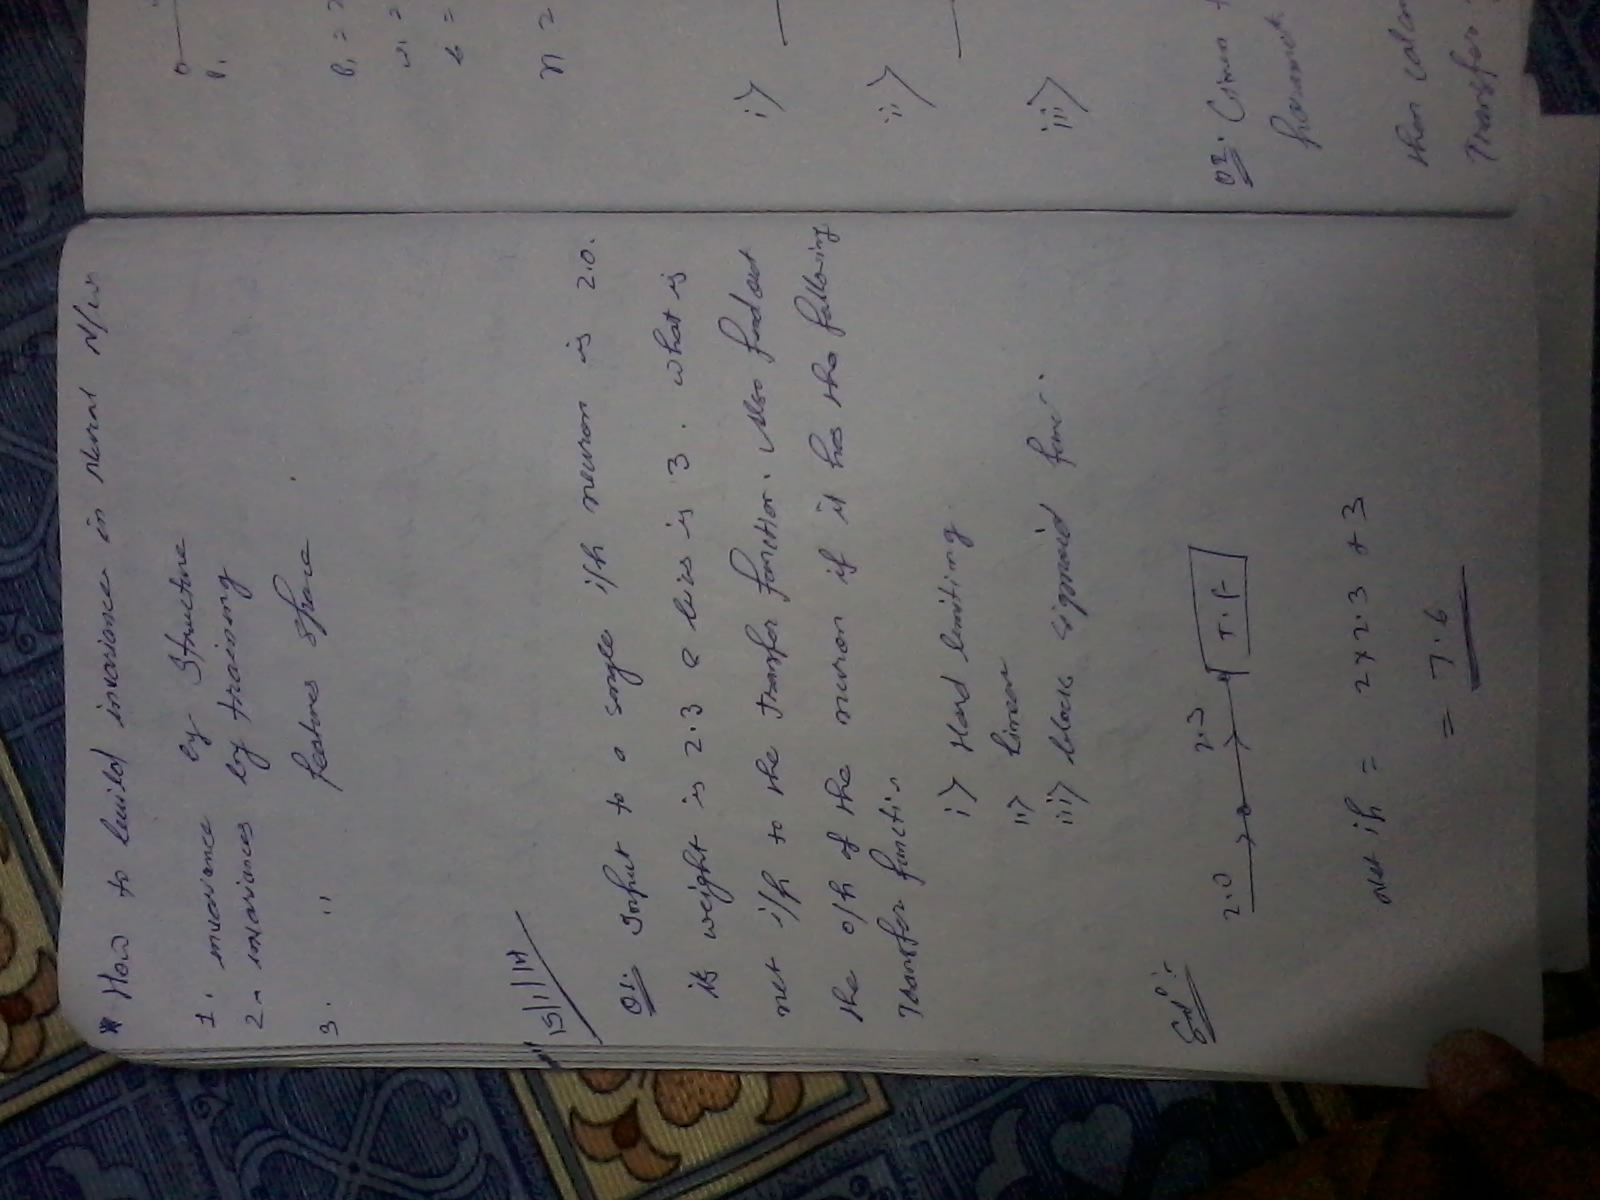 * How to build invariance in neural N/w
1. invariance by Structure
2. invariances by training
3. " features space
15/1/14
Q1. Input to a single i/p neuron is 2.0.
its weight is 2.3 & bias is 3. what is
net i/p to the transfer function. Also find out
the o/p of the neuron if it has the following
Transfer function
i) Hard limiting.
ii) linear
iii) sigmoid func.
Solⁿ:-
2.0 2.3 T.f
Net i/p = 2x2.3 + 3
= 7.6
P1
P1 = 2
w1 =
b =
n =
i)
ii)
iii)
Q2. Given
then calcu
Transfer